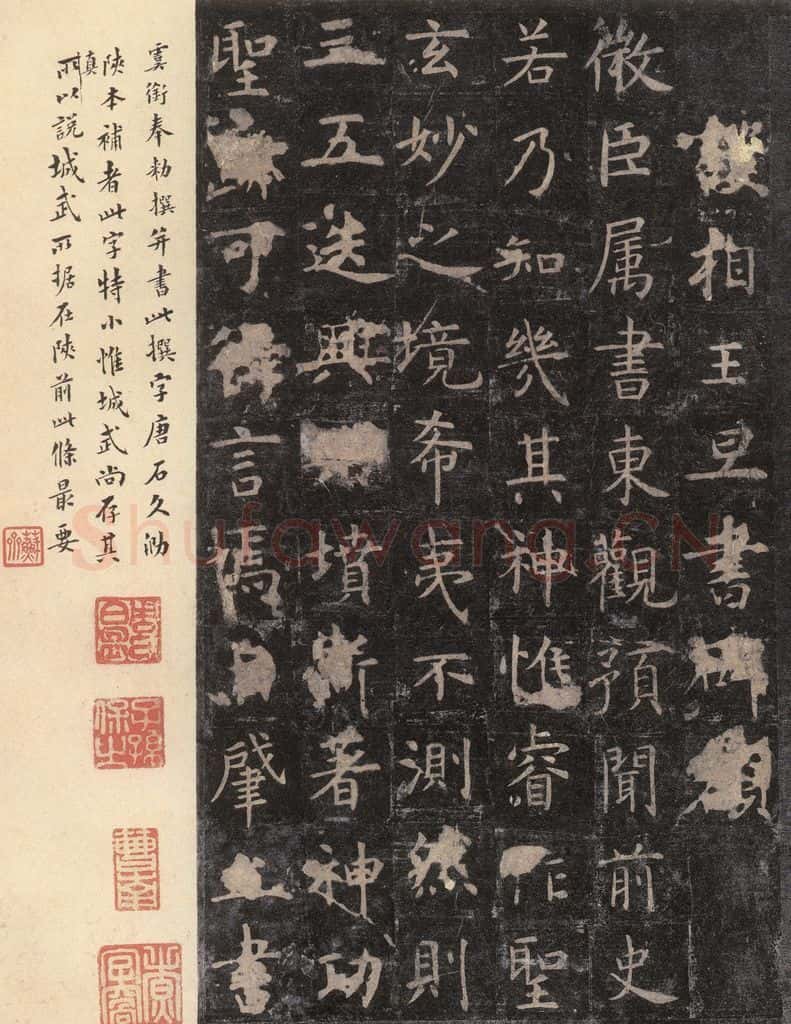 護相王旦書碑額
微臣属書東觀預聞前史
若乃知幾其神惟睿作聖
玄妙之境希夷不測然則
三五迭興墳斯著神功
聖迹可得言焉自肇立書
虞銜奉勅撰并書此撰字唐石久泐
陝本補者此字特小惟城武尚存其
真所以說城武所据在陝前此條最要
子孫保之
曹南
Shufawang.CN